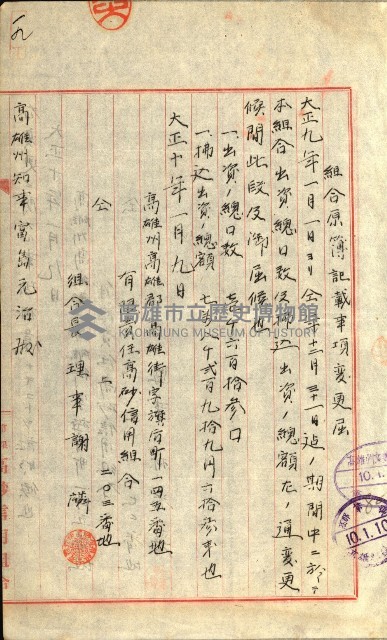 一九
組合原簿記載事項變更屆
大正九年一月一日ヨリ仝十二月三十一日迄ノ期間中ニ於テ
本組合出資總口数及拂込出資ノ總額左ノ通變更
候間此段及御屆候也
一、出資ノ總口数 六百拾參口
一、拂込出資ノ總額 七千弐百九拾九円六拾
大正十年一月九日
高雄州高雄郡高雄街字旗后町一四五番地
有限責任高砂信用組合
仝 二〇三番地
組合長理事謝
高雄州知事富島元治殿
高雄市立歷史博物館
KAOHSIUNG MUSEUM OF HISTORY
10.1.10
10.1.10